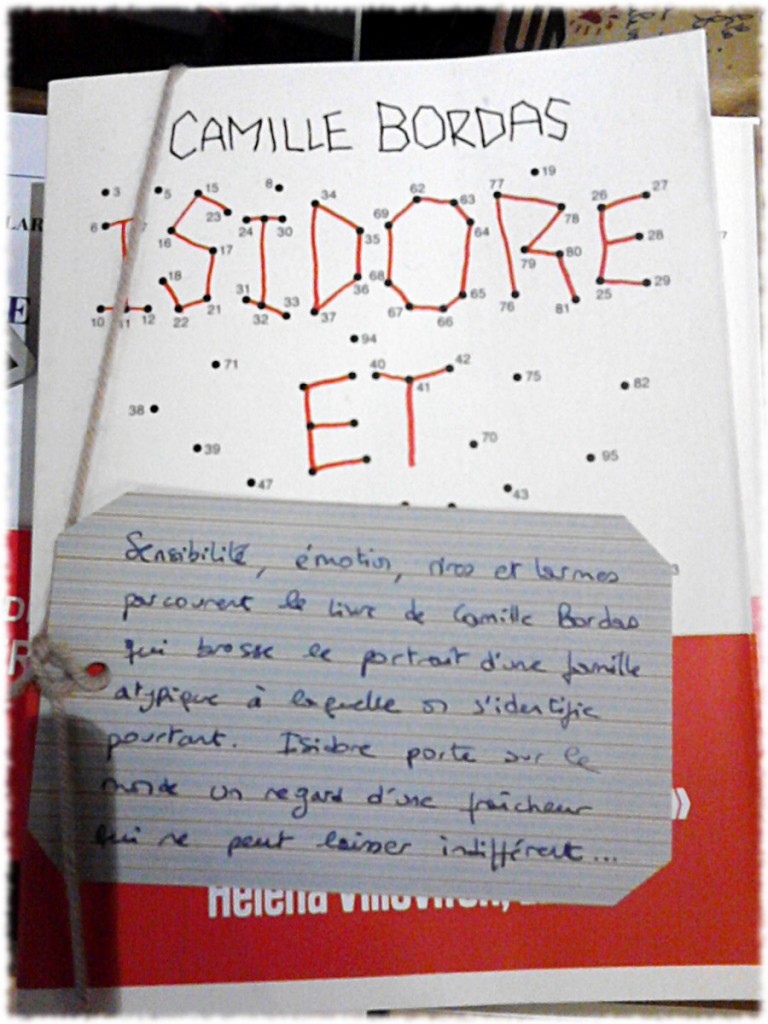 CAMILLE BORDAS
3 5 15 8 34 62 19 77 27
6 7 23 24 30 69 63 78 26
16 17 35 64 28
18 36 68 79 80
10 11 12 22 21 31 32 33 37 67 66 65 76 81 25 29
ISIDORE
94
71 40 42 75 82
41
38
39 70 95
47 43
ET
Sensibilité, émotion, rires et larmes
parcourent le livre de Camille Bordas
qui brosse le portrait d'une famille
atypique à laquelle on s'identifie
pourtant. Isidore porte sur le
monde un regard d'une fraîcheur
qui ne peut laisser indifférent...
»
Héléna
LAR
E